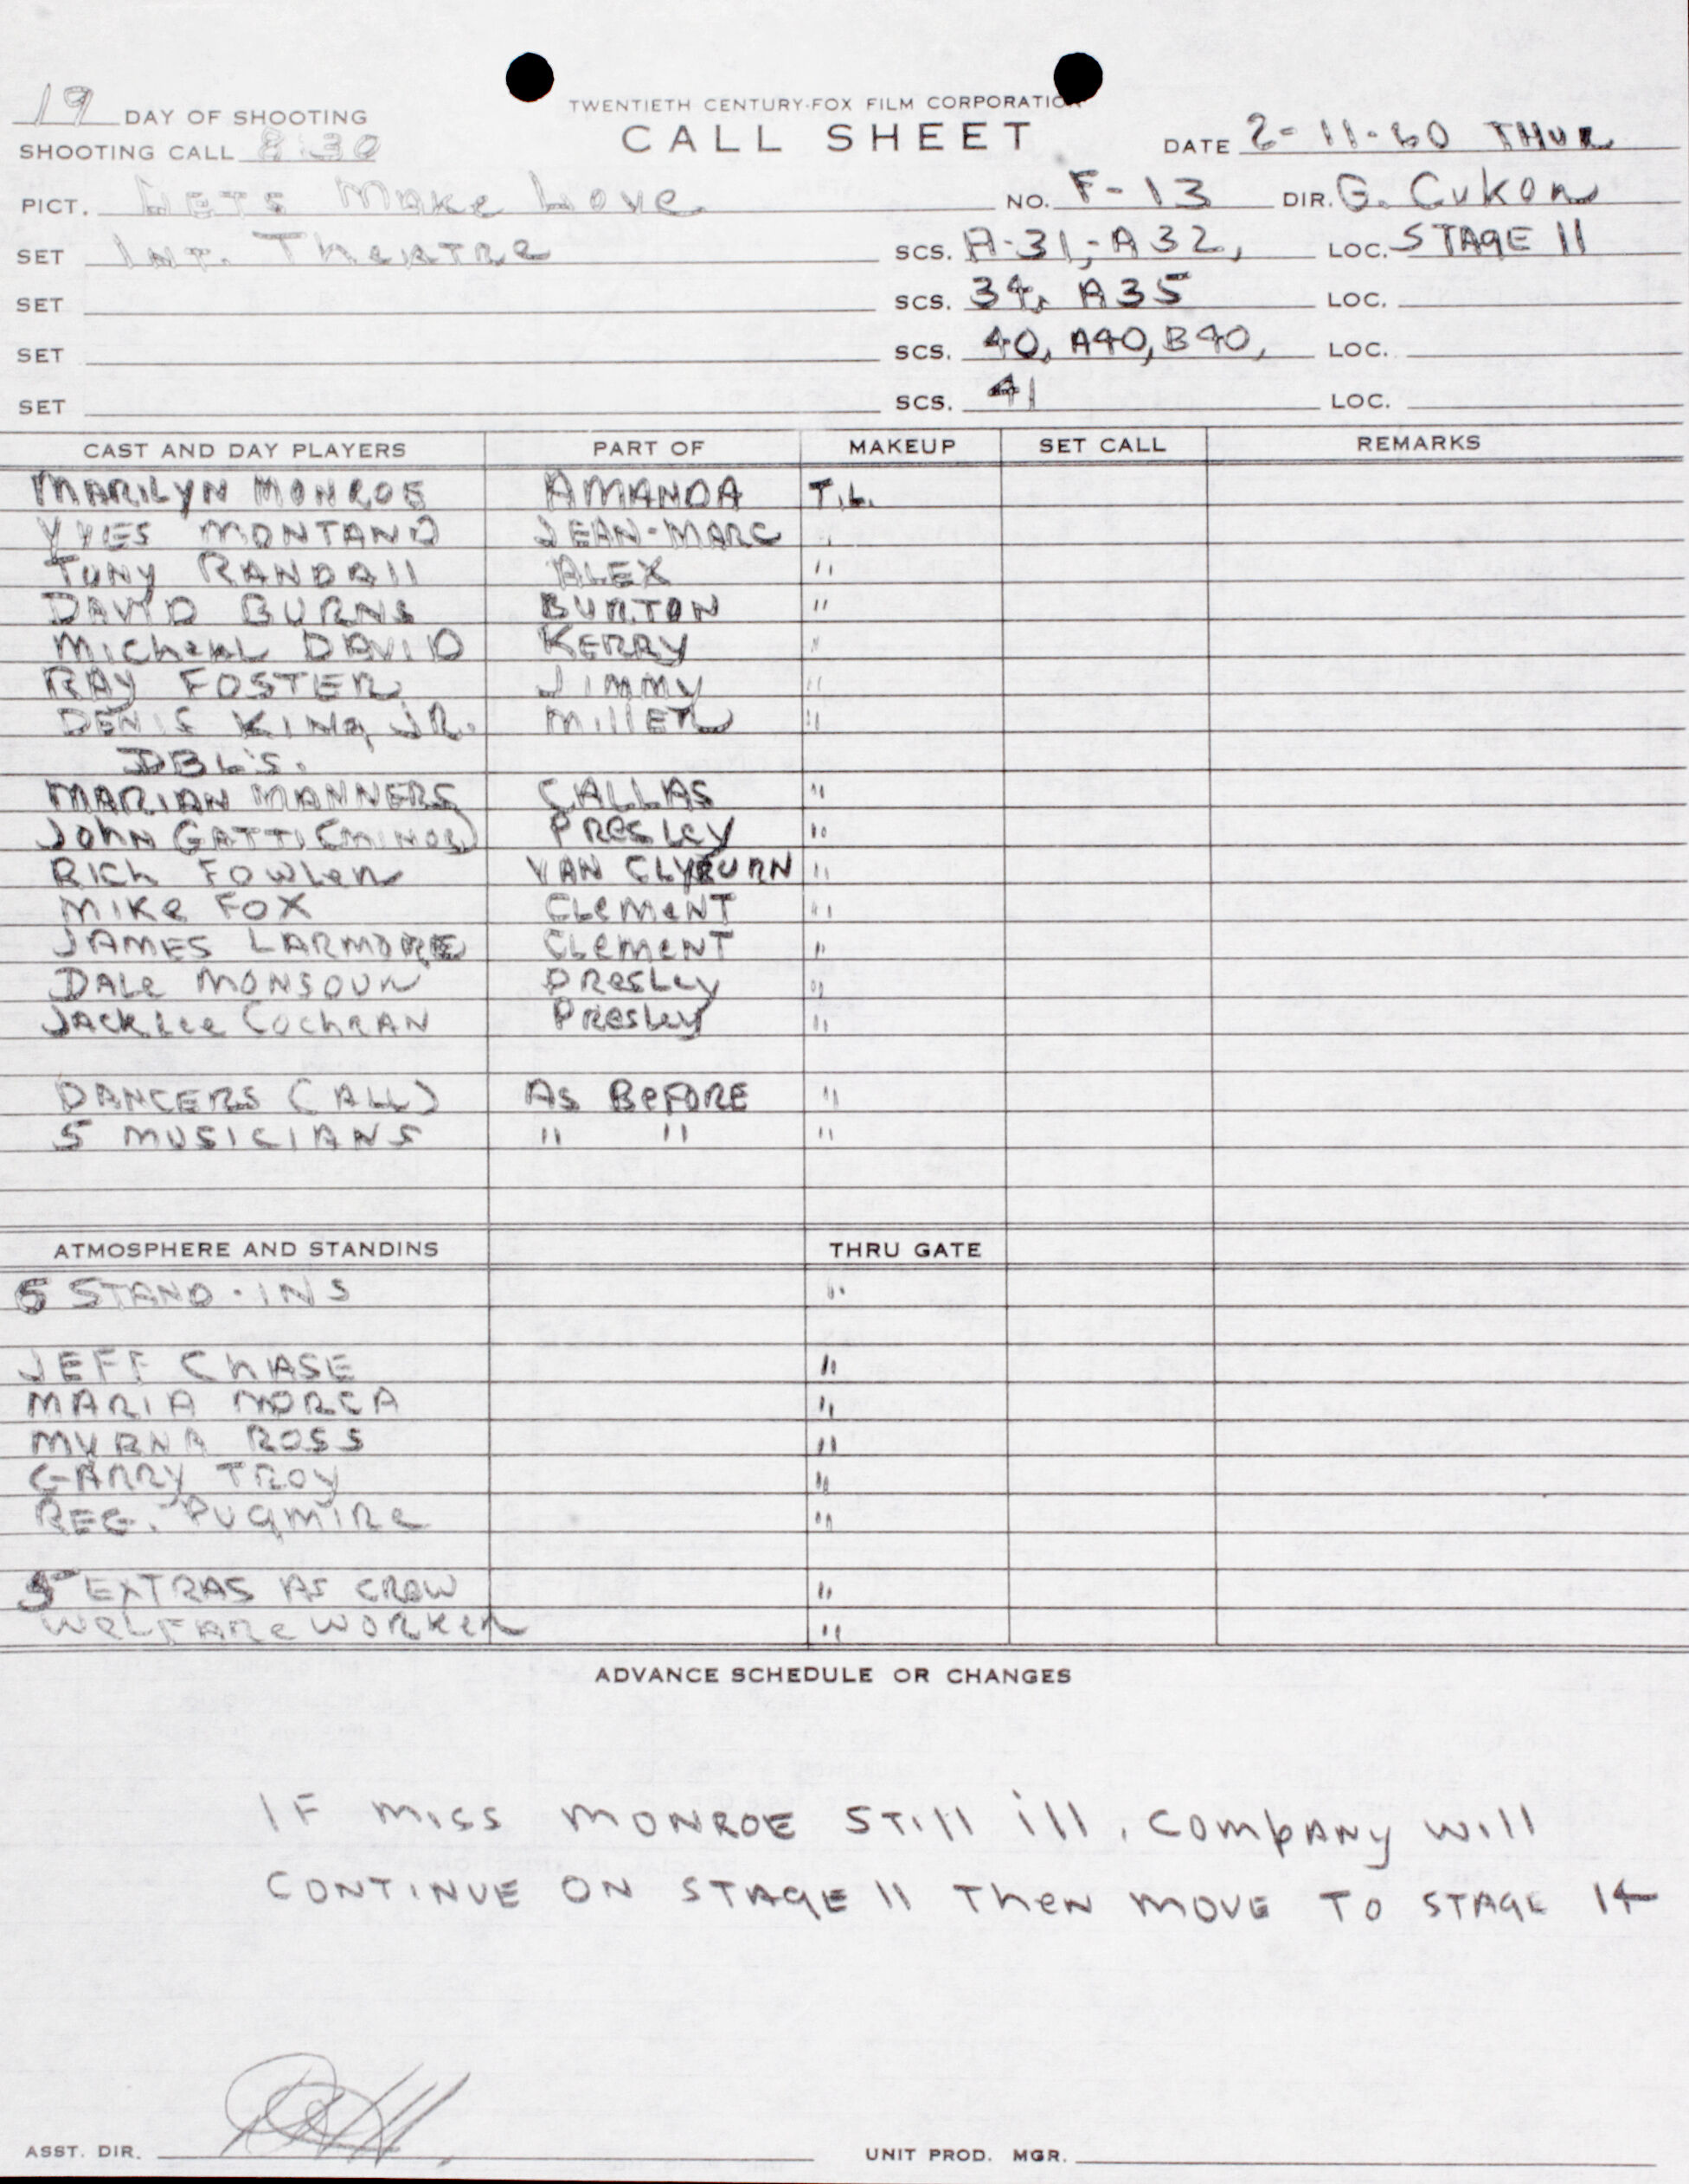 19 DAY OF SHOOTING
TWENTIETH CENTURY-FOX FILM CORPORATION
SHOOTING CALL 8:30
CALL SHEET
DATE 2-11-60 THUR
PICT. LETS MAKE LOVE NO. F-13 DIR. G. CUKOR
SET INT. THEATRE SCS. A-31,-A32, LOC. STAGE 11
SET SCS. 34, A35 LOC.
SET SCS. 40, A40, B40, LOC.
SET SCS. 41 LOC.
CAST AND DAY PLAYERS PART OF MAKEUP SET CALL REMARKS
MARILYN MONROE AMANDA T.L.
YVES MONTAND JEAN-MARC "
TONY RANDAll ALEX "
DAVID BURNS BURTON "
MICHEAL DAVID KERRY "
RAY FOSTER JIMMY "
DENIS KING, JR. MIllER "
DBL'S.
MARIAN MANNERS CALLAS "
JOHN GATTI (MINOR) PRESLEY "
RICH FOWLER VAN CLYBURN "
MIKE FOX CLEMENT "
JAMES LARMORE CLEMENT "
DALE MONSOUR PRESLEY "
JACK LEE COCHRAN PRESLEY "
DANCERS (ALL) AS BEFORE "
5 MUSICIANS " " "
ATMOSPHERE AND STANDINS THRU GATE
5 STAND-INS "
JEFF CHASE "
MARIA MORCA "
MYRNA ROSS "
GARRY TROY "
REG. PUGMIRE "
5 EXTRAS AS CREW "
WELFARE WORKER "
ADVANCE SCHEDULE OR CHANGES
IF MISS MONROE STILL ILL, COMPANY WILL
CONTINUE ON STAGE 11 THEN MOVE TO STAGE 14
ASST. DIR. UNIT PROD. MGR.